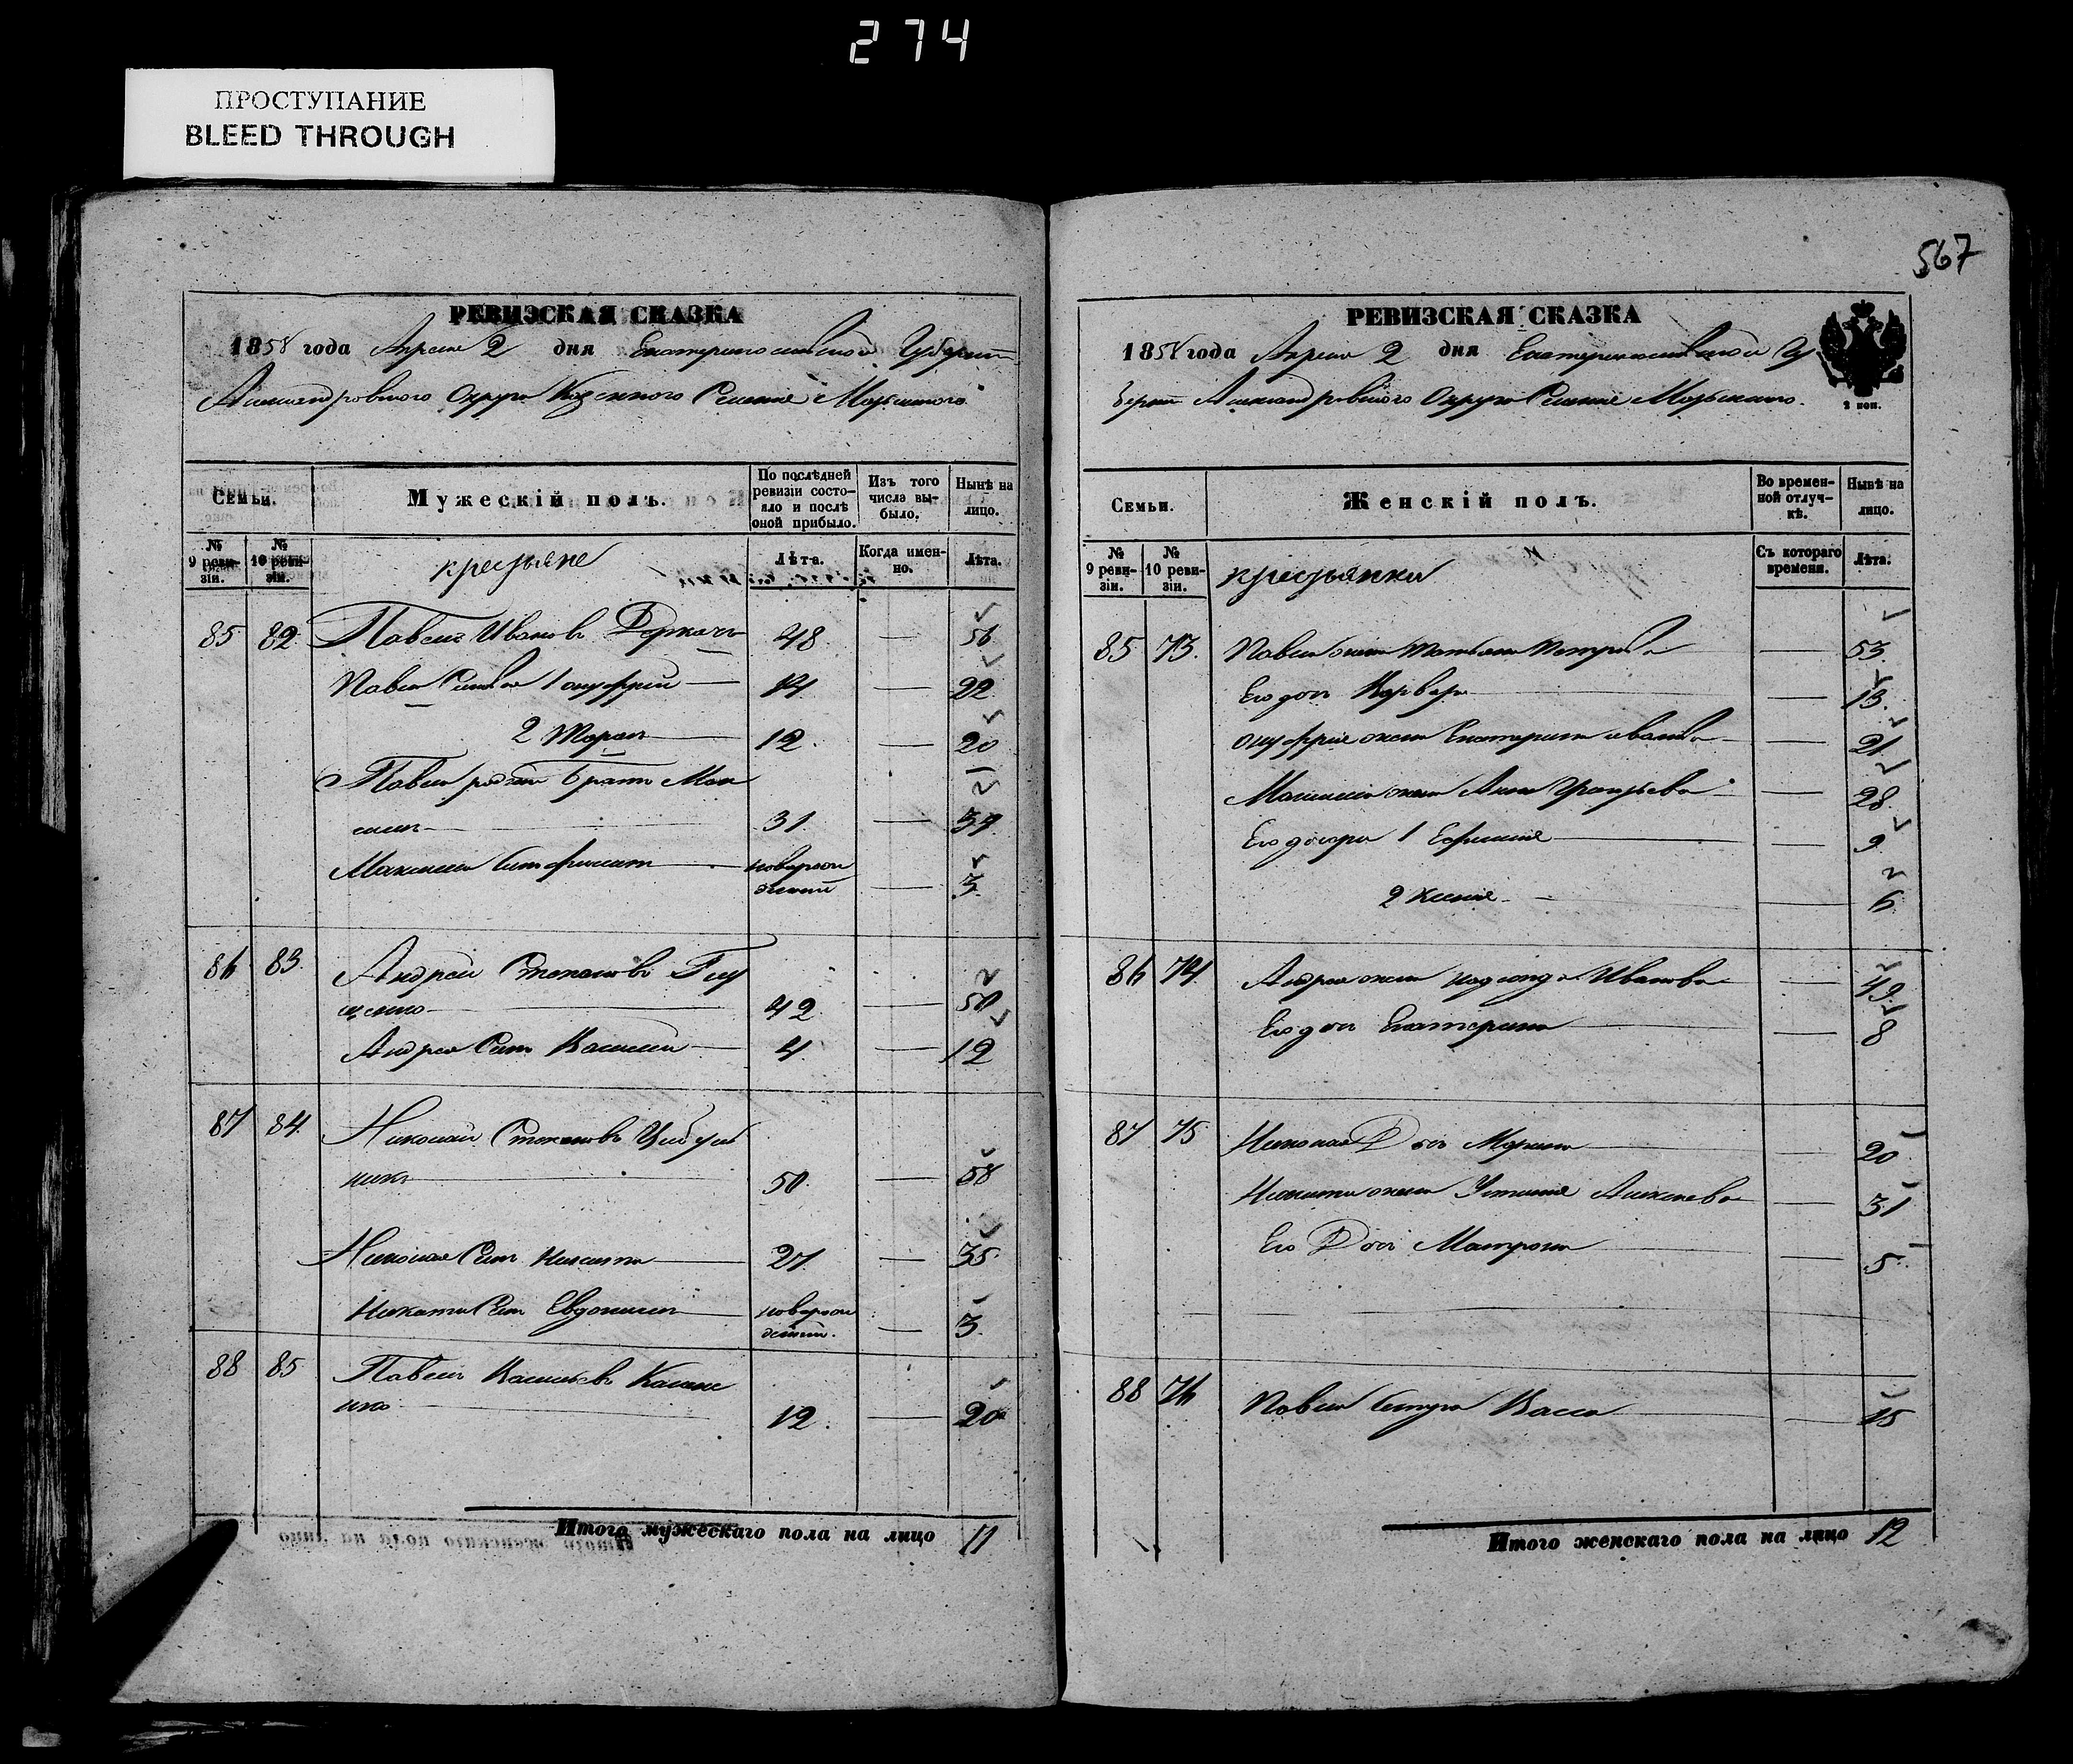 274
ПРОСТУПАНИЕ
BLEED THROUGH
РЕВИЗСКАЯ СКАЗКА
1858 года Апреля 2 дня Екатеринославской Губернии
Александровского Округа Казенного Селения Марьинского
Семьи.
Мужескій полъ.
По послѣдней ревизіи состояло и послѣ оной прибыло.
Изъ того числа выбыло.
Нынѣ на лицо.
№ 9 ревизіи.
№ 10 ревизіи.
крестьяне
Лѣта.
Когда именно.
Лѣта.
85 82 Павелъ Ивановъ 48 — 56
Павла Сыновья 1 Онуфрий — 14 — 22
2 Тарасъ — 12. — 20
Павла родной братъ Мак
симъ — 31. — 39
Максима Сынъ — новорож
денный — 3.
86 83. Андрей Степановъ
42 — 50
Андрея Сынъ Василий — 4 — 12
87 84. Николай Степановъ
50. — 58
Николая Сынъ Никита — 27 — 35.
Никиты Сынъ Евдокимъ — новорож
денный. — 3.
88 85 Павелъ Васильевъ
12. — 20
Итого мужескаго пола на лицо 11
567
РЕВИЗСКАЯ СКАЗКА
1858 года Апреля 2 дня Екатеринославской Гу
берніи Александровского Округа Селения Марьинского.
2 коп.
Семьи.
Женскій полъ.
Во временной отлучкѣ.
Нынѣ на лицо.
№ 9 ревизіи.
№ 10 ревизіи.
крестьянки
Съ котораго времени.
Лѣта.
85 73. Павла жена Татьяна Петрова — 53.
Его дочь Варвара — 13.
Онуфрия жена Екатерина Иванова — 21
Максима жена Анна — 28.
Его дочери 1 Ефимия — 9
2 Ксения — 6
86 74. Андрея жена Надежда Иванова — 49.
Его дочь Екатерина — 8
87 75 Николая Дочь Марина — 20
Никиты жена Устинья Алексеева — 31
Его Дочь Матрона — 5.
88 76 Павла Сестра Васса — 15
Итого женскаго пола на лицо 12